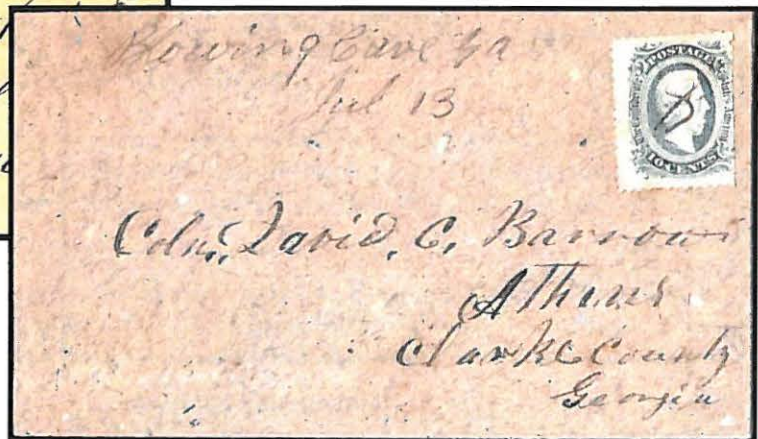 Blowing Cave Ga
Jul 13
POSTAGE
TEN CENTS
Coln. David. C. Barrow
Athens
Clarke County
Georgia